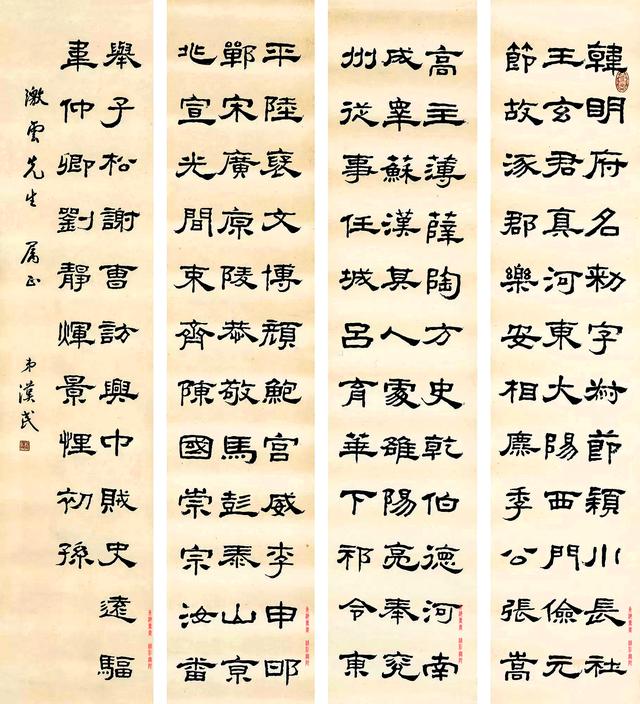 韓明府名勑字叔節潁川長社
王玄君真河東大陽西門儉元
節故涿郡樂安相麃季公張嵩
高主薄薛陶方史乾伯德河南
成睾蘇漢其人處雒陽亮奉兖
州從事任城呂育華下邳令東
平陸裦文博顏鮑宮威李申邯
鄲宋廣原陵恭敬馬彭泰山京
兆宣光間束齊陳國崇宗汝番
舉子松謝曹訪興中賊史遠驅
韋仲卿劉靜煇景悝初孫
雲先生 屬正
弟漢民